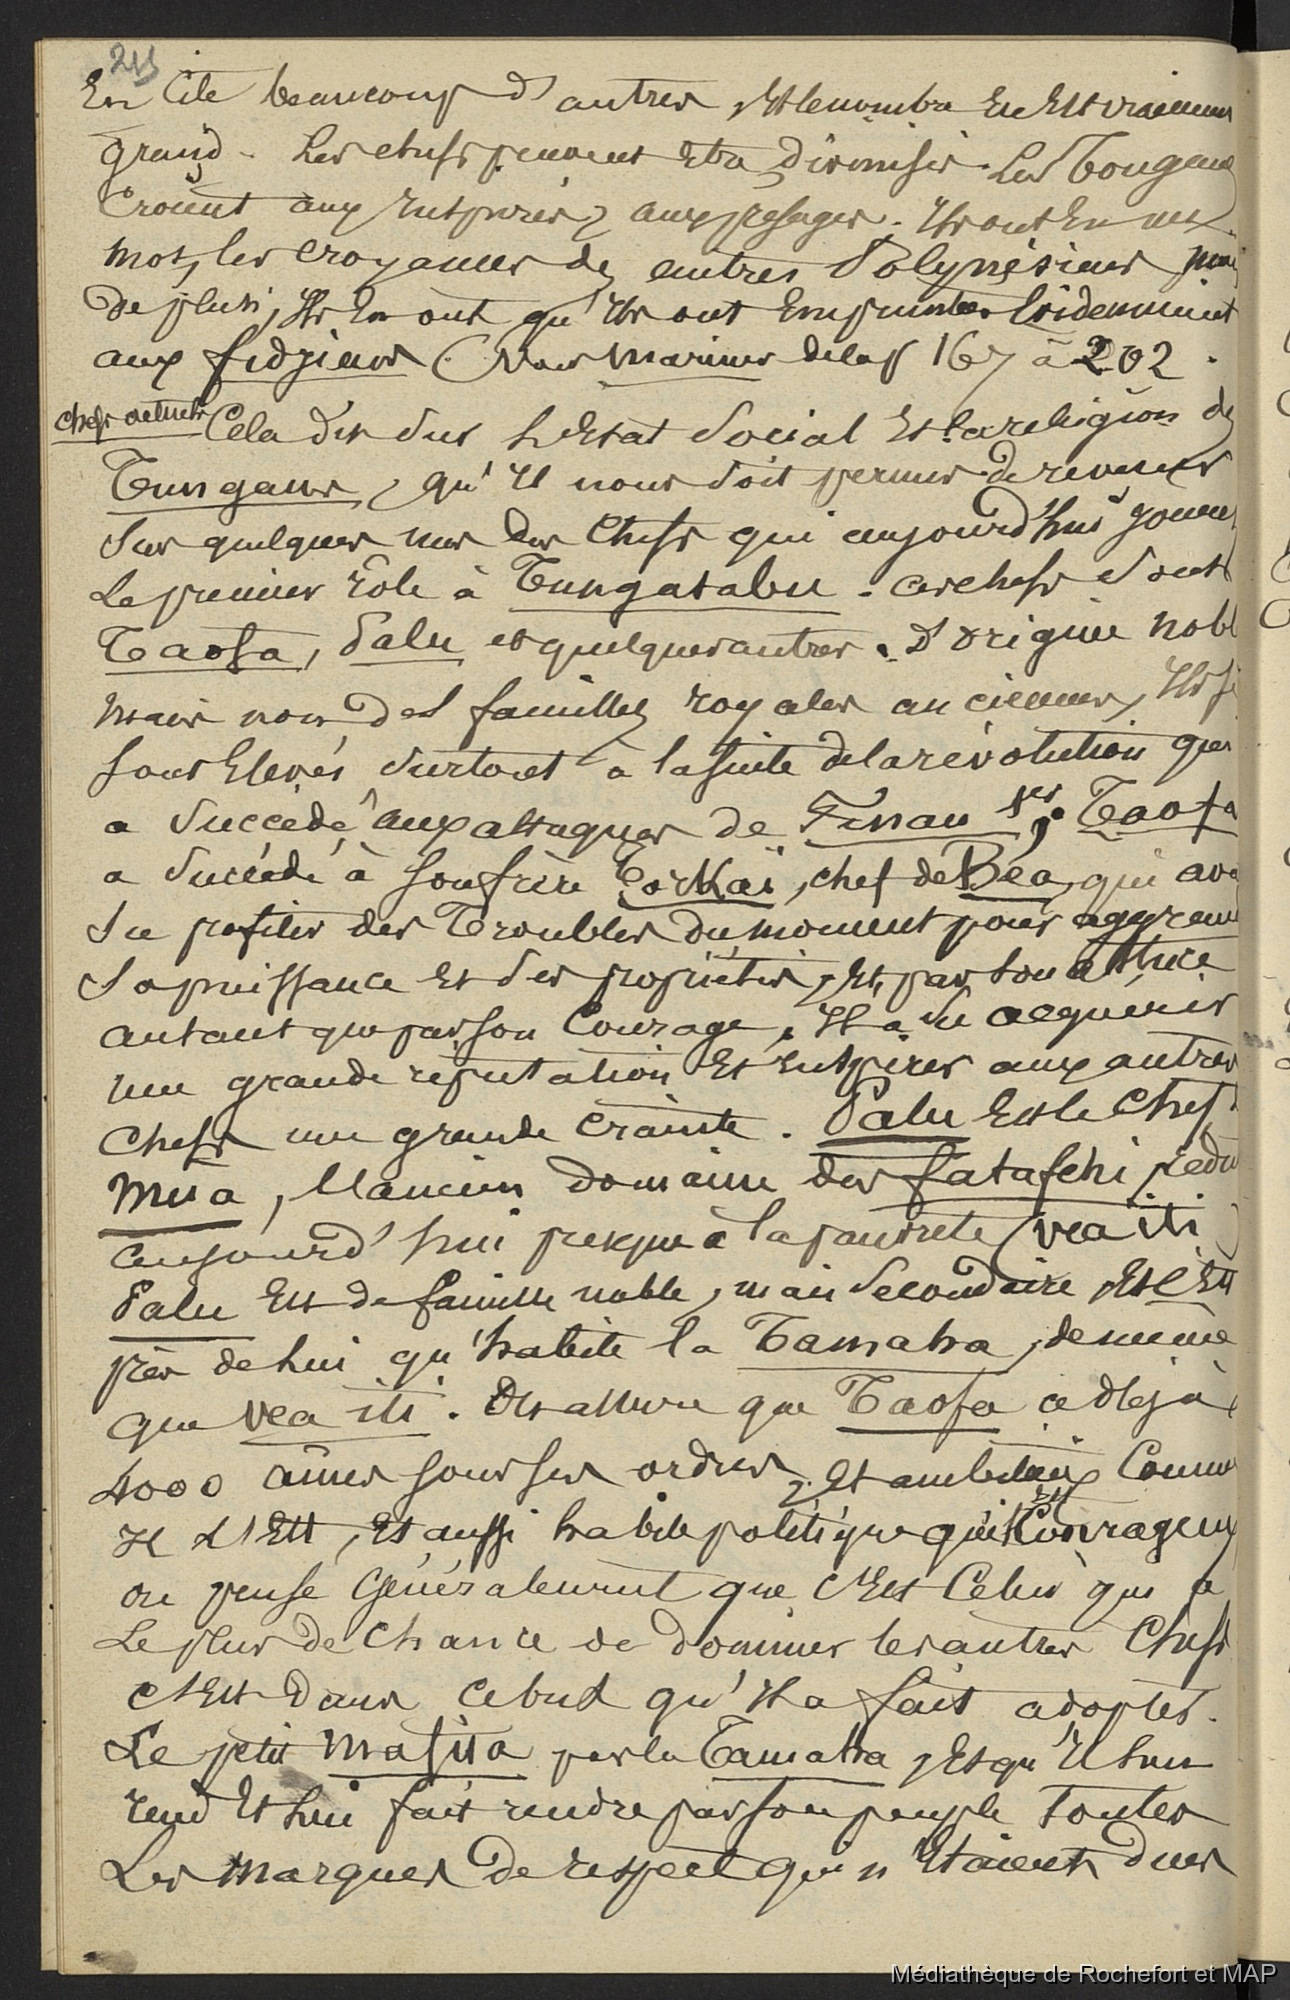 211
En Cite beaucoup d'autres, Et le nombre En Est vraiment
grand. Les chefs peuvent être divinisés. Les Tongans
Croient aux Esprits, aux présages. Ils ont En un
mot, les croyances des autres Polynésiens, mais
de plus, Ils En ont qu'Ils ont Empruntées Evidemment
aux fidjiens (Vois Mariner de la p 167 à 202.
chefs actuels Cela dit sur L'Etat Social Et la religion des
Tungans, qu'Il nous soit permis de revenir
Sur quelques uns des Chefs qui aujourd'hui jouent
Le premier rôle à Tungatabu. ces chefs sont
Taofa, Palu et quelques autres. D'origine noble
mais non des familles royales anciennes, Ils se
sont Elevés surtout à la suite de la révolution qui
a succédé aux attaques de Finau 1er. Taofa
a succédé à son frère Tarkai, chef de Béa, qui avait
su profiter des Troubles du moment pour aggrandir
Sa puissance Et ses propriétés, Et, par son astuce
autant que par son Courage, Il a su acquérir
une grande réputation Et inspirer aux autres
Chefs une grande crainte. Palu Est le Chef de
Mua, L'ancien Domaine des fatafehi, réduit
aujourd'hui presque à la pauvreté (vea iti)
Palu Est de famille noble, mais Secondaire, Et c'Est
près de lui qu'habite la Tamaha, de même
que Vea iti. On assure que Taofa a déjà
4000 âmes sous ses ordres, Et ambitieux Comme
Il L'Est, Et aussi habile politique qu'il Est Courageux
on pense Généralement que c'Est Celui qui a
Le plus de Chance de dominer les autres Chefs
c'Est dans ce but qu'Il a fait adopter
Le petit Mafua par la Tamaha, Et qu'Il lui
rend Et lui fait rendre par son peuple Toutes
Les marques de respect qui n'Etaient dues
Médiathèque de Rochefort et MAP